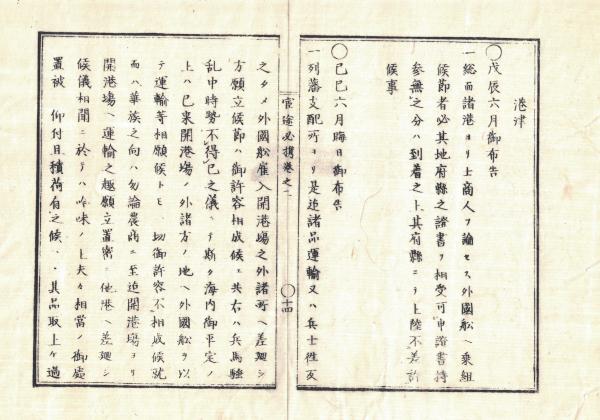 港津
〇戊辰六月御布告
一総而諸港ヨリ上商人ヲ論セス外國舩ヘ乗組
候節者必其地府縣之證書ヲ相受可申證書持
参無之分ハ到着之上其府縣ヨリ上陸不差許
候事
〇己巳六月晦日御布告
一列藩支配所ヨリ是迄諸品運輸又ハ兵士徃返
官途必携巻之一
〇十四
之タメ外國舩雇入開港場之外諸所ヘ差廻シ
方願立候節ハ御許容相成候得共右ハ兵馬騒
乱中時勢不得已之儀ニテ斯ク海内御平定ノ
上ハ已来開港場ノ外諸方ノ地ヘ外國舩ヲ以
テ運輸等相願候トモ一切御許容不相成候就
而ハ華族之向ハ勿論農商ニ至迄開港場ヨリ
開港場ヘ運輸之趣願立置密ニ他港ヘ差廻シ
候儀相聞ニ於テハ吟味ノ上夫々相當ノ御處
置被 仰付且積荷有之候ハヽ其品取上ケ過